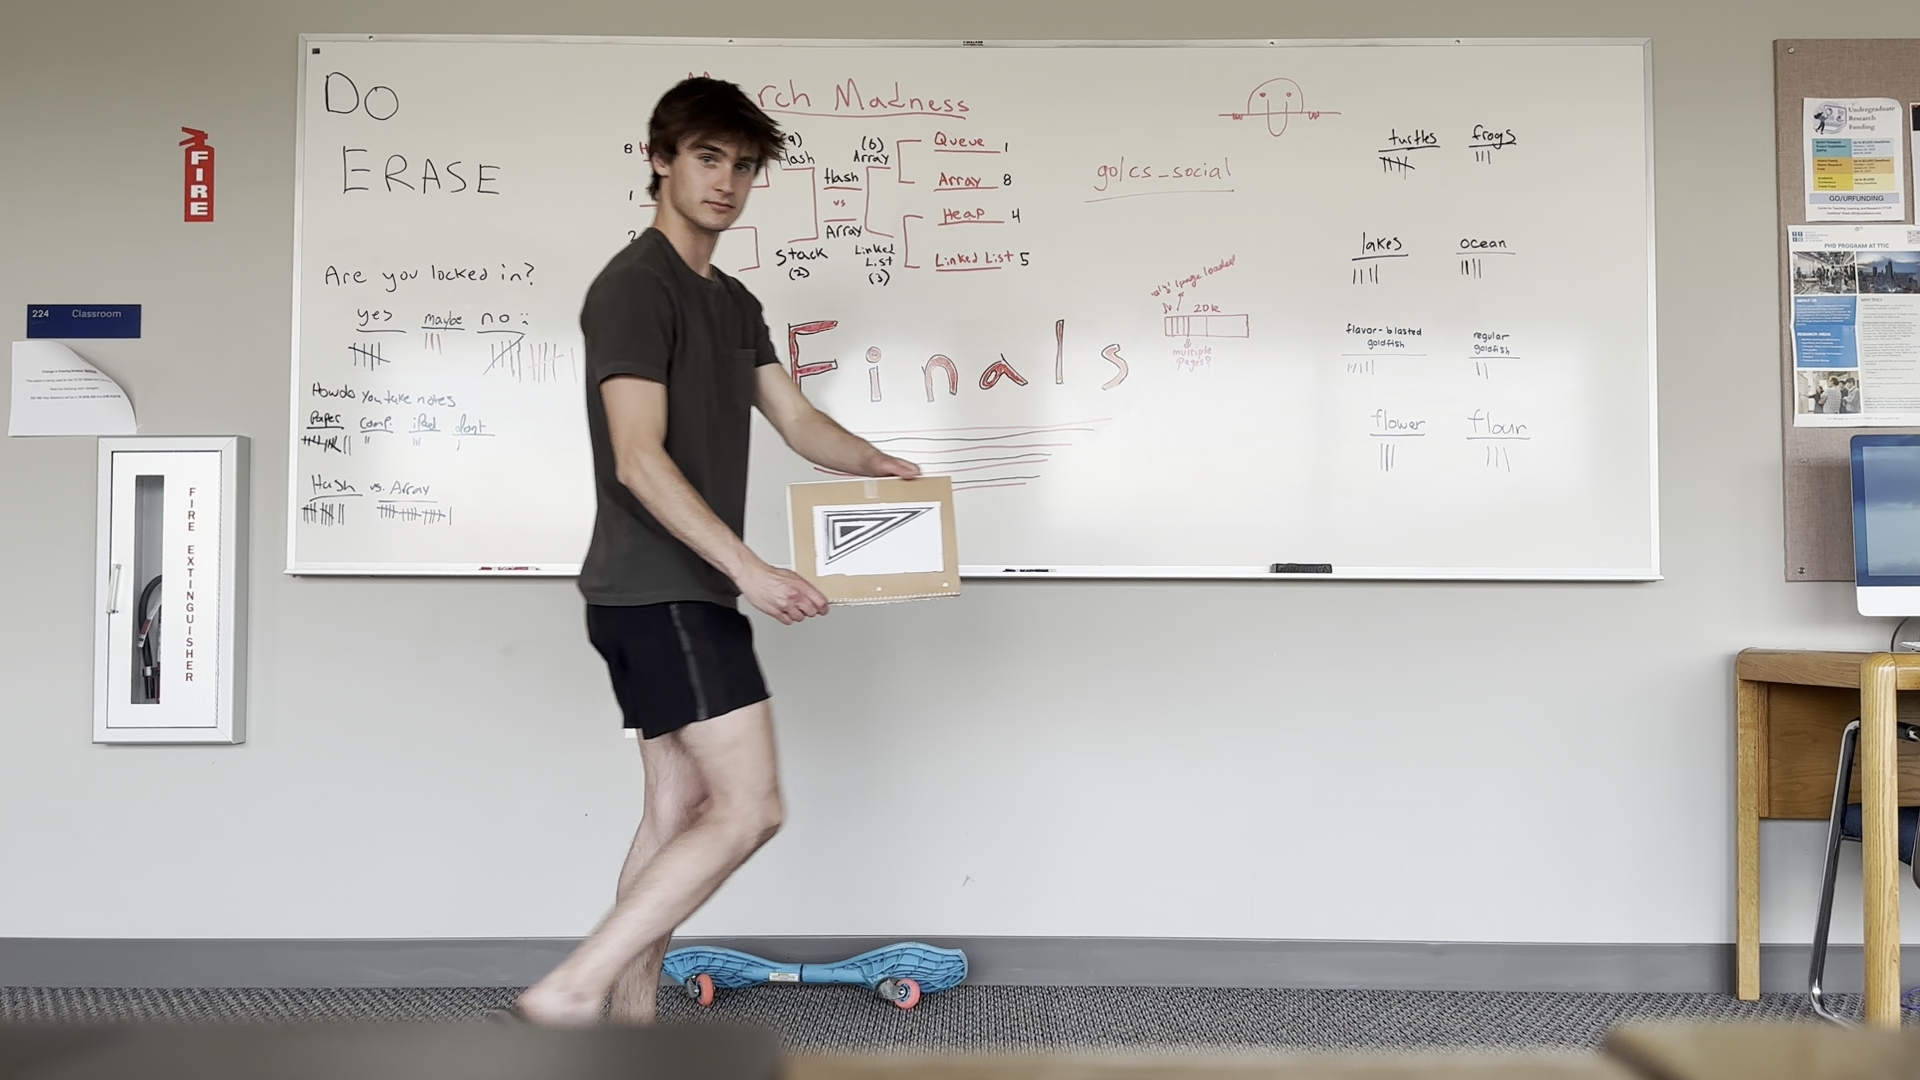 DO
ERASE
FIRE
224 Classroom
FIRE EXTINGUISHER
Are you locked in?
yes maybe no :
How do you take notes
Paper comp. iPad dont
Hash vs. Array
rch Madness
8 H
1
2
Hash
Stack
(2)
Hash
vs
Array
(6)
Array
Linked
List
(3)
Queue 1
Array 8
Heap 4
Linked List 5
Finals
go/cs_social
1 page loaded!
20k
multiple
pages?
turtles frogs
lakes ocean
flavor-blasted
goldfish
regular
goldfish
flower flour
Undergraduate
Research
Funding
GO/URFUNDING
PHD PROGRAM AT TTIC